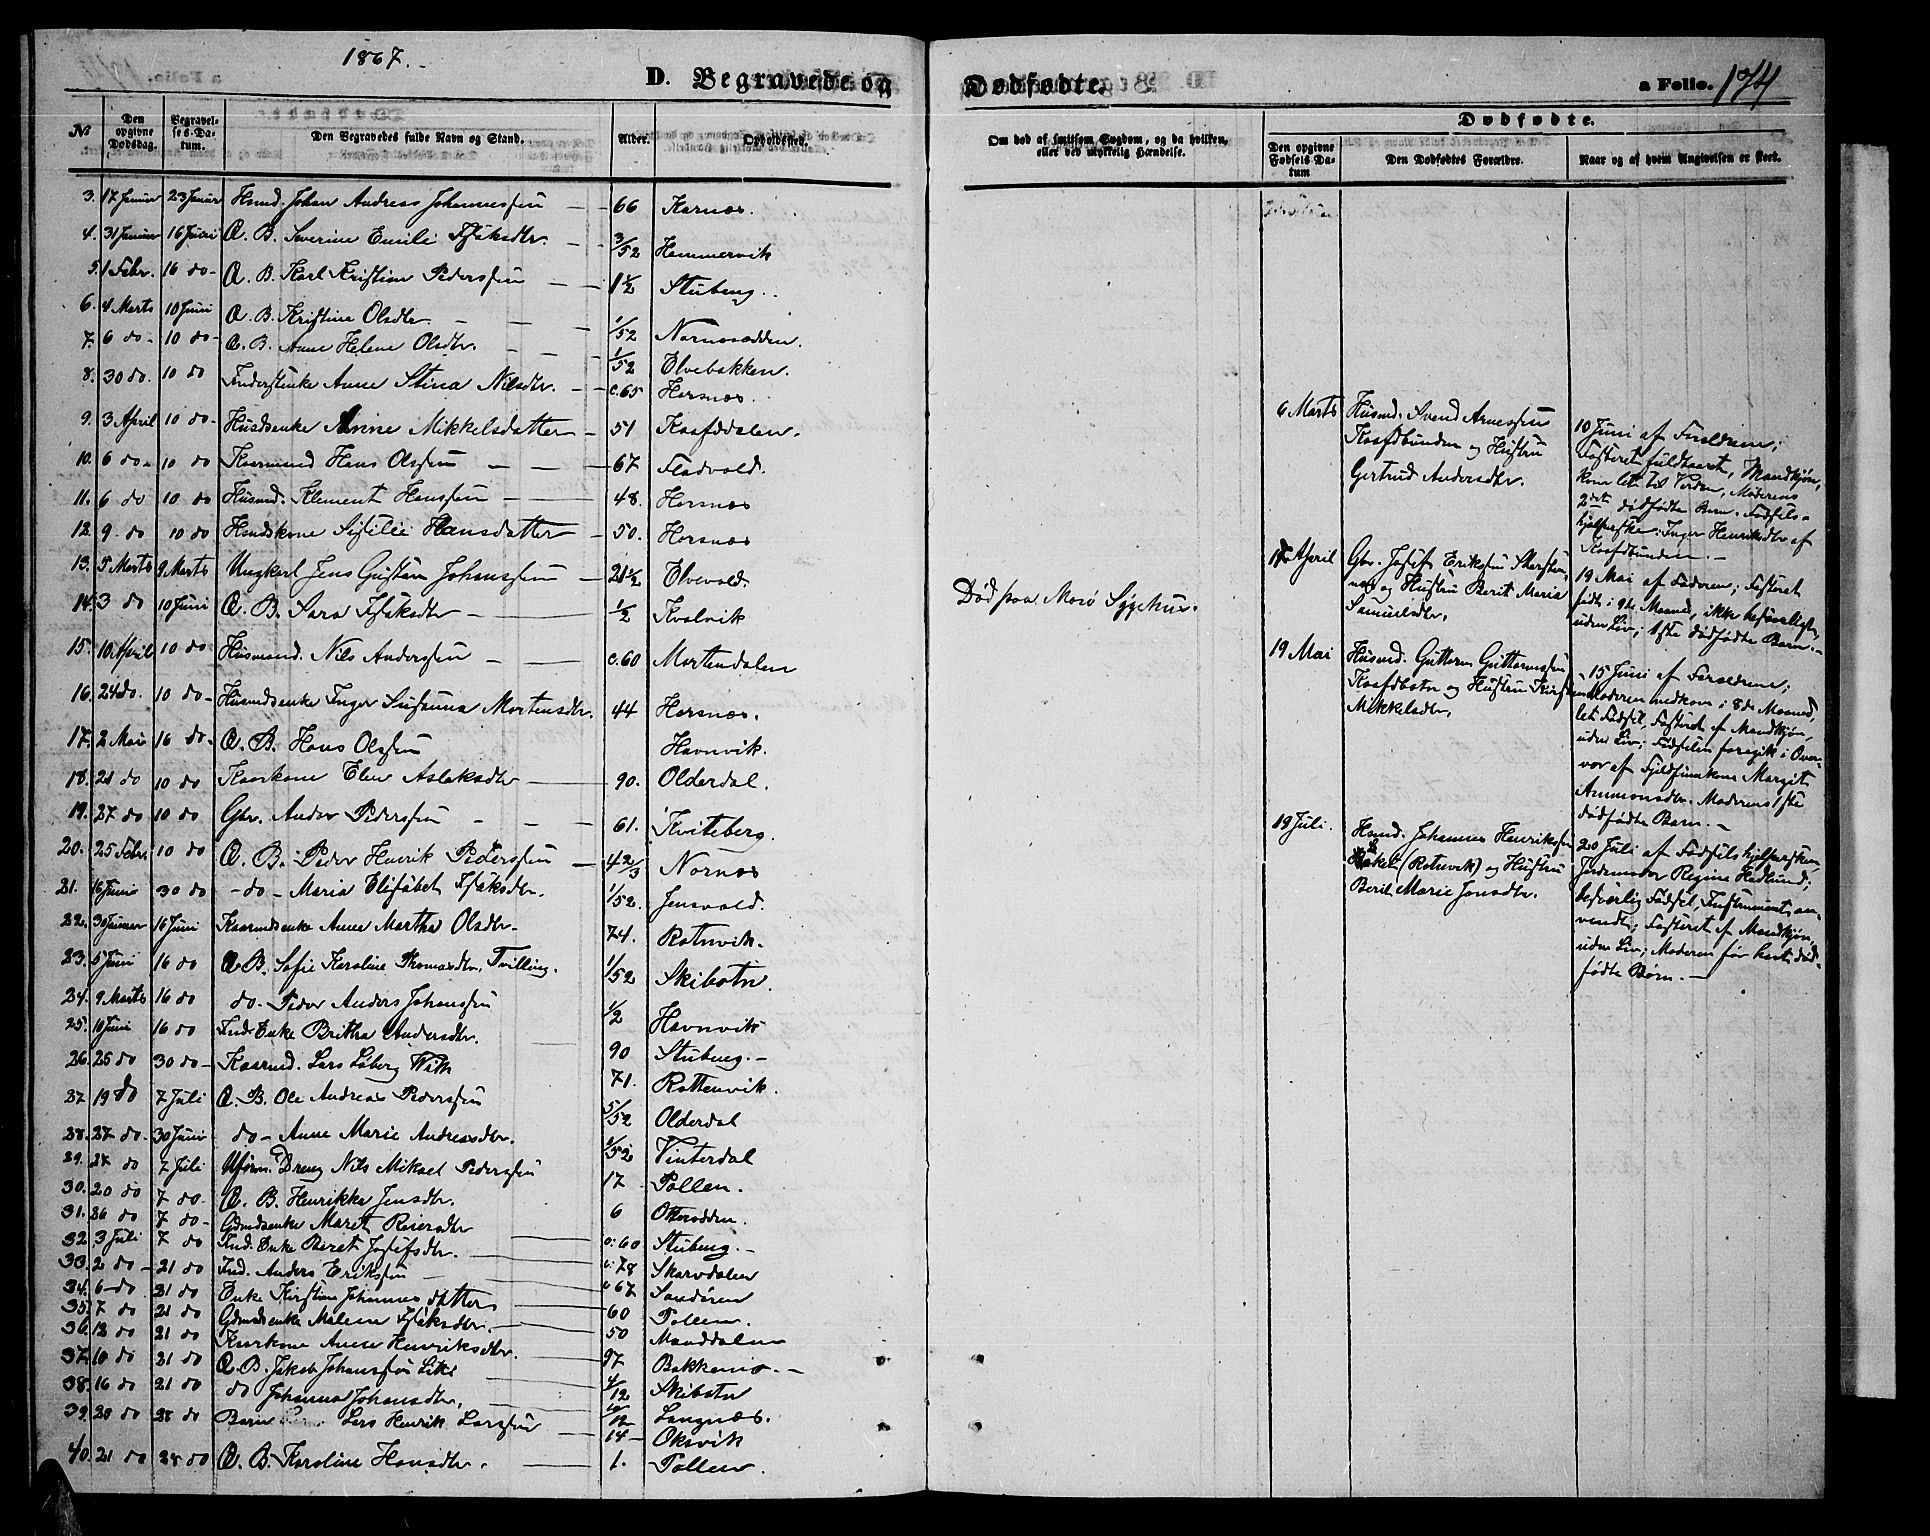 1867.
D. Begravede og
Dødfødte.
a Folio. 174
№ Den opgivne Dødsdag. Begravelses-Datum. Den Begravedes fulde Navn og Stand. Alder. Opholdssted.
Om død af smitsom Sygdom, og da hvilken, eller ved ulykkelig Hændelse.
Dødfødte.
Den opgivne Fødsels-Datum Den Dødfødtes Forældre. Naar og af hvem Angivelsen er skeet.
3. 17 Januar 23 Januar Husmd. Johan Andreas Johannessen 66 Karnæs.
4. 31 Januar 16 Juni Æ. B. Severine Emilie Isaksdtr. 3/52 Hammervik
5. 1 Febr. 16 do Æ. B. Karl Kristian Pedersen 1 1/2 Stubeng.
6. 4 Marts 10 Juni Æ. B. Kristine Olsdtr. 1/52 Nornæsodden.
7. 6 do 10 do Æ. B. Anne Helene Olsdtr. 1/52 Elvebakken.
8. 30 do. 10 do Inderstenke Anne Stina Nilsdtr. c. 65 Horsnæs.
9. 3 April 10 do Husdsenke Anne Mikkelsdatter 51 Kaafddalen.
10. 6 do 10 do Kaarmand Hans Olssen 67 Fladvold.
11. 6 do 10 do Husmd. Klement Hanssen 48. Horsnæs
12. 9 do 10 do Husmdskone Sisilie Hansdatter 50. Horsnæs
13. 5 Marts 9 Marts Ungkarl Jens Gustav Johanssen 21 1/2 Elvevold. Død paa Mosø Sygehus.
14. 3 do 10 Juni Æ. B. Sara Isaksdtr 1/2 Kvalvik
15. 10 April 10 do Husmand. Nils Anderssen c. 60 Mortendalen
16. 24 do. 10 do Husmdsenke Inger Susanna Mortensdtr. 44 Horsnæs.
17. 2 Mai 16 do Æ. B. Hans Olssen Havnvik.
18. 21 do 10 do Kaarkone Elen Aslaksdtr 90. Olderdal.
19. 27 do 10 do Gbr. Andor Pederssen 61. Kviteberg.
20. 25 Febr. 10 do Æ. B. Peder Henrik Pederssen 4 2/3 Nornæs
21. 16 Juni 30 do do Maria Elisabet Isaksdtr. 1/52. Jensvold.
22. 30 Januar 16 Juni Kaarmdsenke Anne Martha Olsdtr. 74. Rotnvik.
23. 5 Juni 16 do Æ B. Sofie Karoline Thomasdtr. Tvilling. 1/52 Skibotn.
24. 9 Marts 16 do do. Peder Anders Johanssen 1/2 Havnvik
25. 10 Juni 16 do Ind. Enke Britha Andersdtr. 90 Stubeng.
26. 25 do 30 do Kaarmd. Lars Løberg With 71. Rottenvik.
27 19 do 7 Juli Æ. B. Ole Andreas Pederssen 5/52 Olderdal
28. 27 do 30 Juni do Anne Marie Andreasdtr. 1/52 Vinterdal
29. 27 do 7 Juli Ukonf. Dreng Nils Mikael Pederssen 17 Pollen.
30. 20 do 7 do Æ. B. Henrikka Jensdtr. 6 Otterodden.
31. 26 do 7 do Gdmdsenke Maret Reiersdtr c. 60 Stubeng.
32. 3 Juli 7 do Ind. Enke Beret Josefsdtr. c. 78 Skarvdalen
33. 2 do 21 do Ind. Anders Erikssen c 67 Sandøren
34. 6 do 21 do Enke Kirstina Johannesdatter 60 Pollen.
35. 7 do 21 do Gdmdsenke Malene Isaksdtr. 50 Manddalen
36. 12 do 21 do Kaarkone Anne Henriksdtr. 97 Bakkemo.
37. 10 do 21 do Æ. B. Jakob Johanssen Like 4/12 Skibotn
38. 16 do 21 do do Johanna Johansdtr. /12 Langnæs.
39. 20 do 28 do Barn Lars Henrik Larssen 14 Oksvik
40. 21 do 28 do Æ. B. Karoline Hansdtr. 1. Pollen.
6 Marts Husmd. Svend Arnessen
Kaafdbunden og Hustru
Gertrud Andersdtr.
10 Juni af Forældrene;
Fosteret fuldbaaret, Mandkjøn,
kom let til Verden, Moderens
2det dødfødte Barn. Fødsels-
hjælperske: Inger Henriksdtr af
Kaafdbunden.
18 April Gbr. Josef Erikssen Skarsten-
næs og Hustru Berit Maria
Samuelsdtr.
19 Mai af Faderen; Fosteret
født i 9de Maaned, ikke besværligt,
uden Liv; 1ste dødfødte Barn.
19 Mai Husmd. Guttorm Guttormssen
Kaafdbotn og Hustru Kirsten
Mikkelsdtr.
15 Juni af Forældrene;
Moderen nedkom i 8de Maaned,
let Fødsel, Fosteret af Mandkjøn,
uden Liv; Fødselen foregik i Over-
vær af Fjeldfinnkone Margit
Ammonsdtr. Moderens 1ste
dødfødte Barn.
19 Juli. Husmd. Johannes Henrikssen
Hakel (Rotnvik) og Hustru
Berit Marie Jonsdtr.
20 Juli af Fødselshjælpersken,
Jordemoder Regine Hedlund;
besværlig Fødsel, Instrument an-
vendt; Fosteret af Mandkjøn,
uden Liv; Moderen før havt død-
fødte Børn.